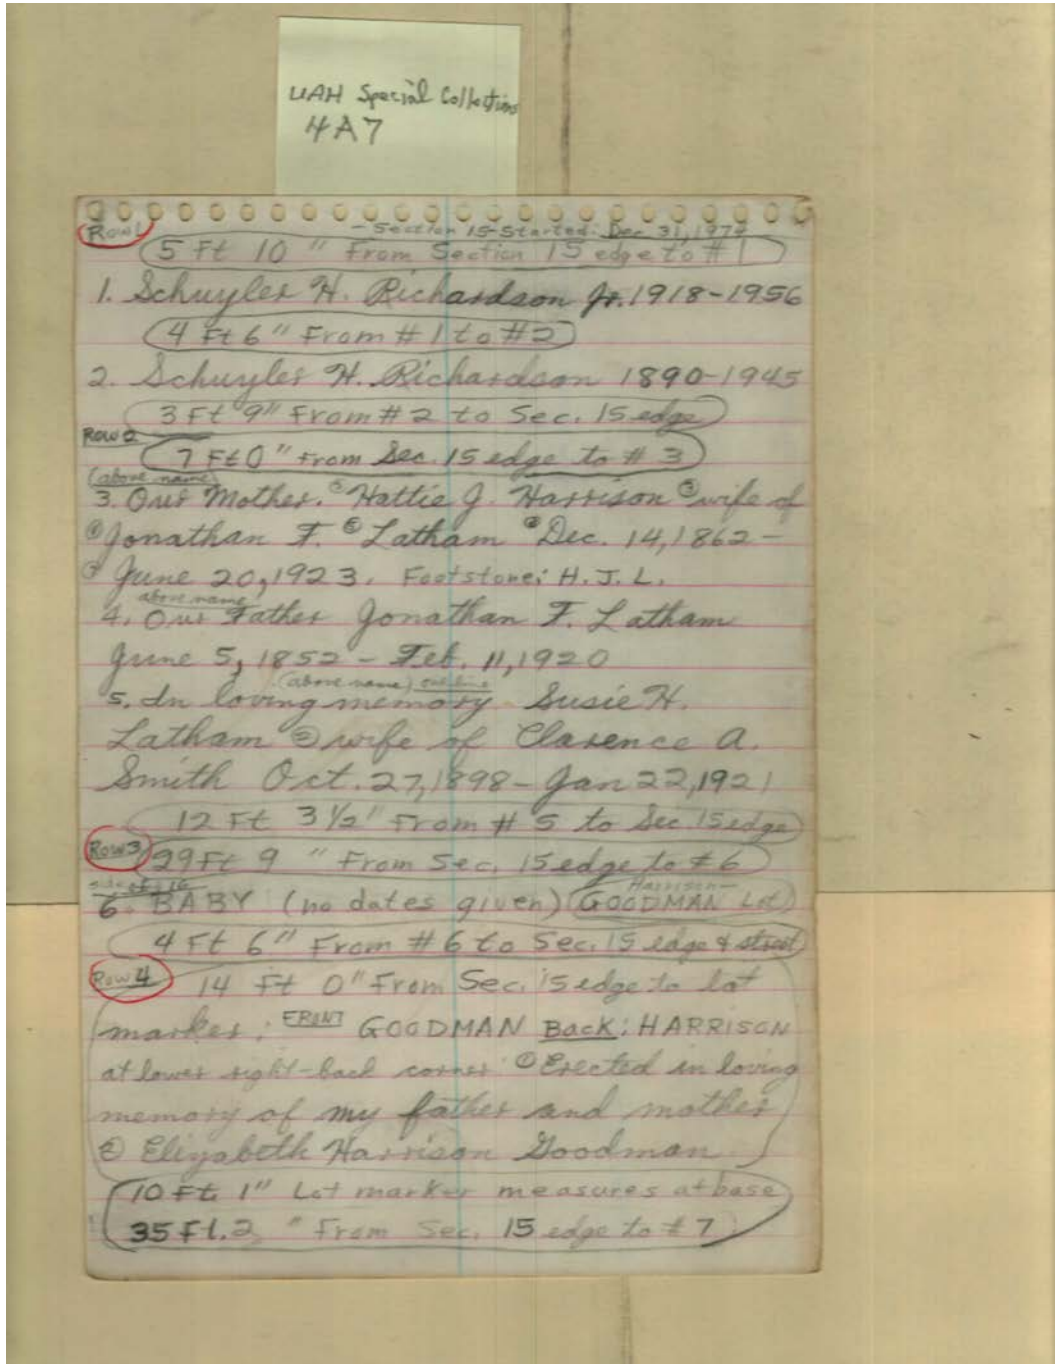 UAH Special Collections
4A7
Row 1
- Section 15-Started: Dec 31, 1974
5 Ft 10 " From Section 15 edge to # 1
1. Schuyler H. Richardson Jr. 1918-1956
4 Ft 6" From # 1 to # 2
2. Schuyler H. Richardson 1890-1945
3 Ft 9" From # 2 to Sec. 15 edge
Row 2
7 Ft 0" From Sec. 15 edge to # 3
(above name)
3. Our Mother. ② Hattie J. Harrison ③ wife of
④ Jonathan F. ⑤ Latham ⑥ Dec. 14, 1862 -
⑦ June 20, 1923. Footstone: H. J. L.
above name
4. Our Father Jonathan F. Latham
June 5, 1852 - Feb. 11, 1920
(above name) one line
5. In loving memory Susie H.
Latham ② wife of Clarence A.
Smith Oct. 27, 1898 - Jan 22, 1921
12 Ft 3 1/2" From # 5 to Sec. 15 edge
Row 3
29 Ft 9 " From Sec. 15 edge to # 6
Harrison-
6. BABY (no dates given) GOODMAN Lot
4 Ft 6" From # 6 to Sec. 15 edge & street
Row 4
14 Ft 0" From Sec. 15 edge to lot
marker: FRONT GOODMAN Back: HARRISON
at lower right-back corner: ① Erected in loving
memory of my father and mother
② Elizabeth Harrison Goodman
10 Ft. 1" Lot marker measures at base
35 Ft. 2 " From Sec. 15 edge to # 7